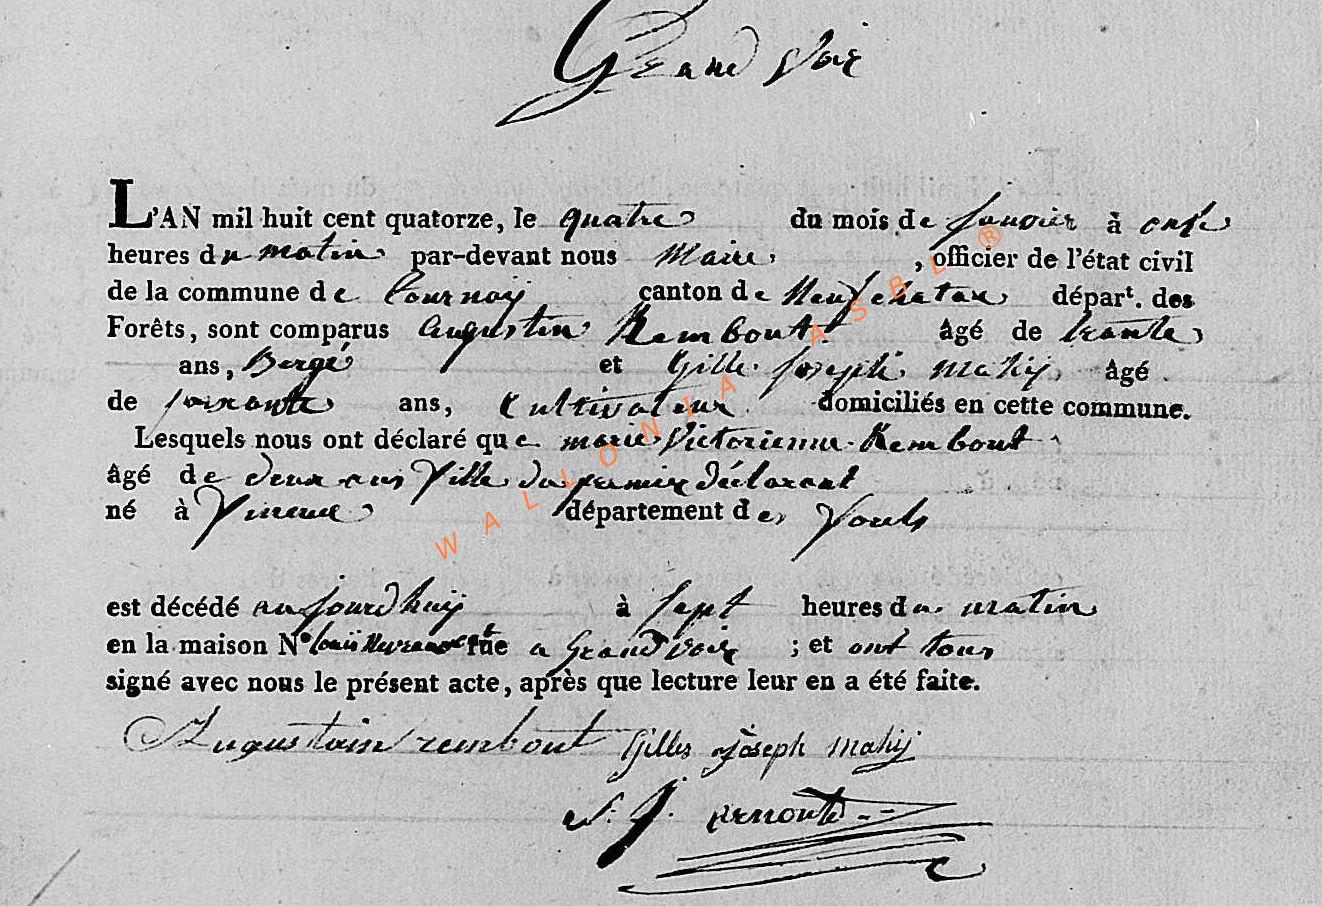 Grand Voir
L'AN mil huit cent quatorze, le quatre du mois de Janvier à onze
heures du matin par-devant nous Maire, officier de l'état civil
de la commune de Tournay canton de Neufchateau départ. des
Forêts, sont comparus Augustin Rembout âgé de trante
ans, Bergé et Gille Joseph Mahy âgé
de soixante ans, Cultivateur domiciliés en cette commune.
Lesquels nous ont déclaré que marie Victorienne Rembout
âgé de deux ans fille du premier déclarant
né à département de
est décédé aujourdhuy à sept heures du matin
en la maison N° rue a Grand voir ; et ont tous
signé avec nous le présent acte, après que lecture leur en a été faite.
Augustain rembout Gilles Joseph Mahy
J.
WALLONIA ASBL ®